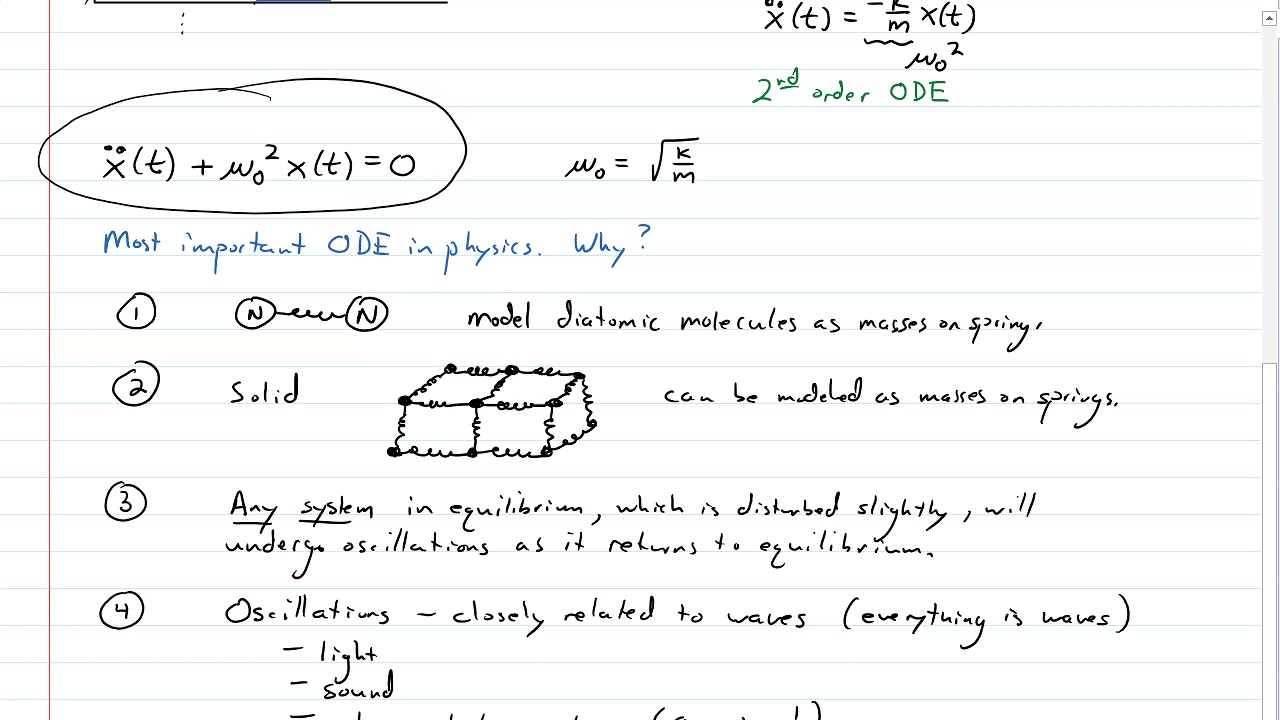 ẍ(t) = -k/m x(t)
ω₀²
2nd order ODE
ẍ(t) + ω₀² x(t) = 0
ω₀ = √(k/m)
Most important ODE in physics. Why?
① N N model diatomic molecules as masses on spring.
② Solid can be modeled as masses on springs.
③ Any system in equilibrium, which is disturbed slightly, will
undergo oscillations as it returns to equilibrium.
④ Oscillations – closely related to waves (everything is waves)
– light
– sound